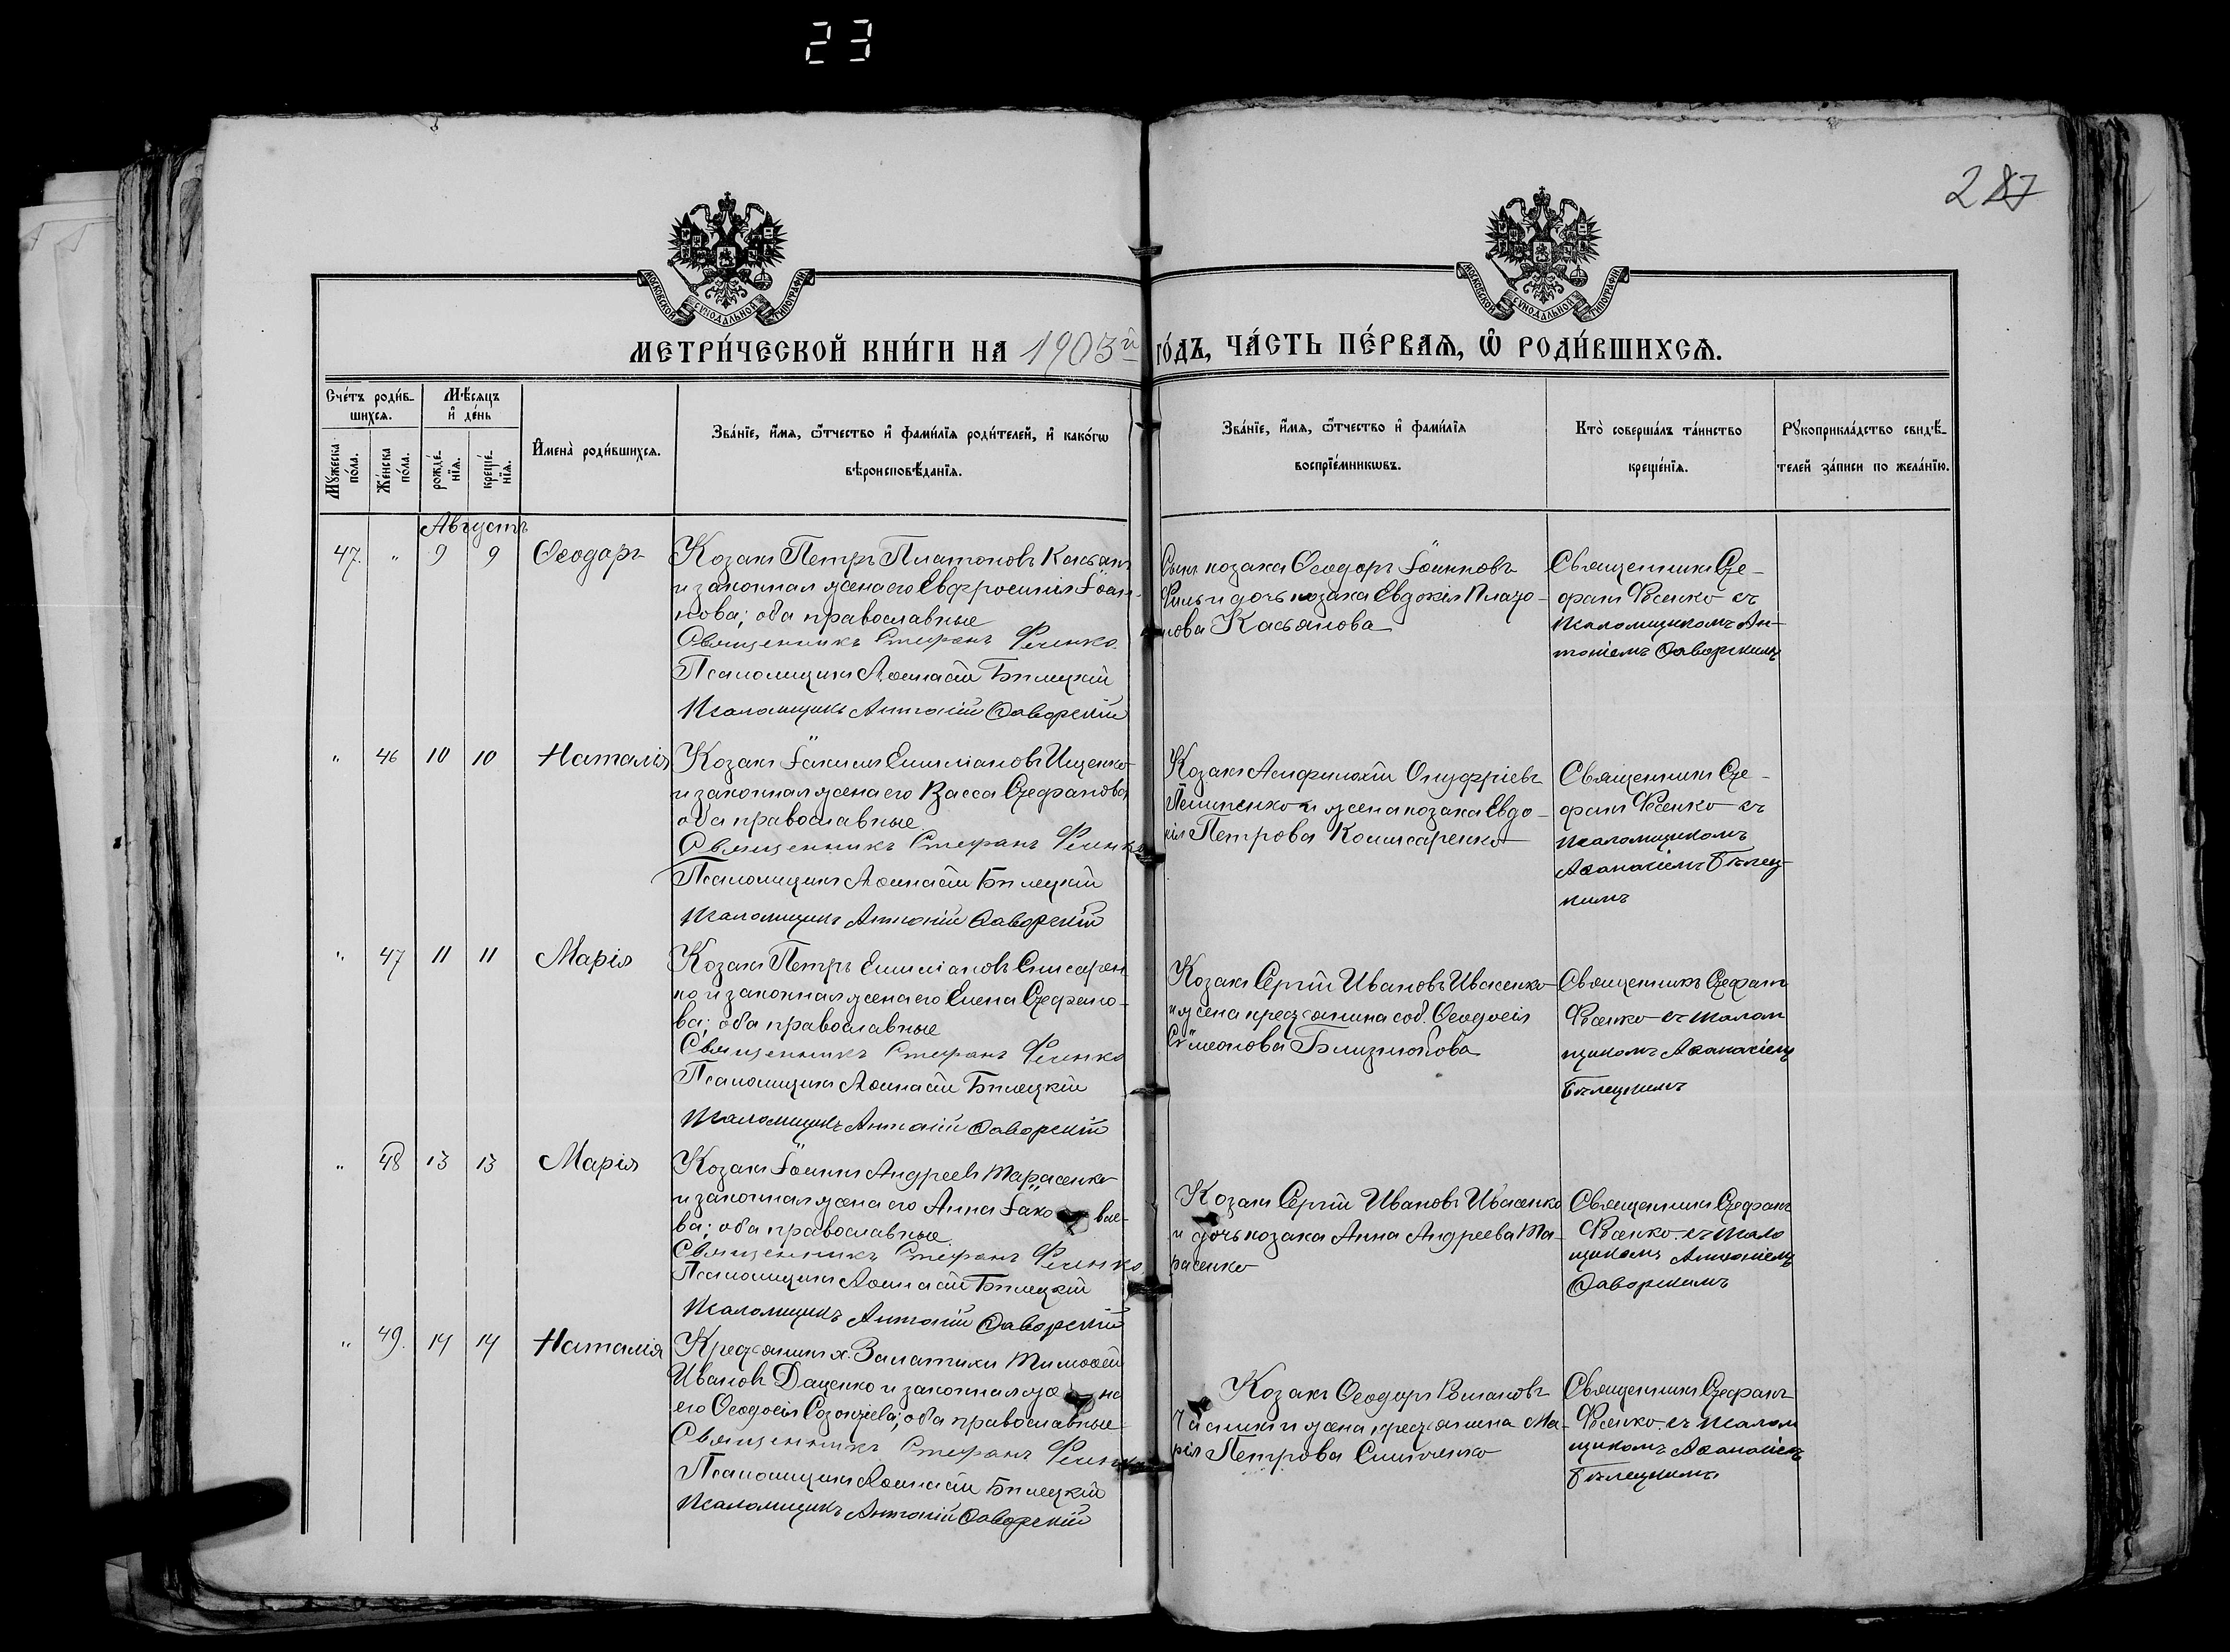 23
287
МОСКОВСКОЙ СѴНОДАЛЬНОЙ ТИПОГРАФІИ
МОСКОВСКОЙ СѴНОДАЛЬНОЙ ТИПОГРАФІИ
МЕТРИ́ЧЕСКОЙ КНИ́ГИ НА 1903й ГО́ДЪ, ЧА́СТЬ ПЕ́РВАѦ, Ѡ҆ РОДИ́ВШИХСѦ.
Сче́тъ роди́в-
шихсѧ.
Мѣ́сяцъ
и҆ де́нь
Мꙋ́жеска по́ла.
Же́нска по́ла.
рожде́-нїѧ.
креще́-нїѧ.
И҆мена̀ роди́вшихсѧ.
Зва́нїе, и҆́мѧ, ѻ҆́тчество и҆ фами́лїѧ роди́телей, и҆ како́гѡ
вѣроисповѣ́данїѧ.
Зва́нїе, и҆́мѧ, ѻ҆́тчество и҆ фами́лїѧ
воспрїе́мникѡвъ.
Кто̀ соверша́лъ та́инство
креще́нїѧ.
Рꙋкоприкла́дство свидѣ́-
телей за́писи по жела́нїю.
Августъ
47. " 9 9 Ѳеодоръ
Козакъ Петръ Платоновъ Касьянъ
и законная жена его Евфросинія Іоан-
нова; оба православные
Священникъ Стефанъ Фесенко.
Псаломщикъ Аѳанасій Бѣлецкій
Псаломщикъ Антоній Ѳаворскій
Сынъ козака Ѳеодоръ Іоанновъ
и дочь козака Евдокія Плато-
нова Касьянова
Священникъ Сте-
фанъ Фесенко съ
псаломщикомъ Ан-
тоніемъ Ѳаворскимъ
" 46 10 10 Наталія
Козакъ Іакимъ Емиліановъ Ищенко
и законная жена его Васса Стефанова
оба православные
Священникъ Стефанъ Фесенко
Псаломщикъ Аѳанасій Бѣлецкій
Псаломщикъ Антоній Ѳаворскій
Козакъ Амфилохій Онуфріевъ
и жена козака Евдо-
кія Петрова Комисаренко
Священникъ Сте-
фанъ Фесенко съ
псаломщикомъ
Аѳанасіемъ Бѣлец-
кимъ
" 47 11 11 Марія
Козакъ Петръ Емиліановъ Слисарен-
ко и законная жена его Елена Стефано-
ва; оба православные
Священникъ Стефанъ Фесенко
Псаломщикъ Аѳанасій Бѣлецкій
Псаломщикъ Антоній Ѳаворскій
Козакъ Сергій Ивановъ Ивасенко
и жена крестьянина соб. Ѳеодосія
Сѵмеонова Близнюкова
Священникъ Стефанъ
Фесенко съ псалом
щикомъ Аѳанасіемъ
Бѣлецкимъ
" 48 13 13 Марія
Козакъ Іоаннъ Андреевъ Тарасенко
и законная жена его Анна Іако влe-
ва; оба православные
Священникъ Стефанъ Фесенко.
Псаломщикъ Аѳанасій Бѣлецкій
Псаломщикъ Антоній Ѳаворскій
Козакъ Сергій Ивановъ Ивасенко
и дочь козака Анна Андреева Та-
расенко
Священникъ Стефанъ
Фесенко съ псало
щикомъ Антоніемъ
Ѳаворскимъ
" 49. 14 14 Наталія
Крестьянинъ х. Тимоѳей
Ивановъ Даценко и законная же на
его Ѳеодосія Созонтіева; оба православные
Священникъ Стефанъ Фесенко
Псаломщикъ Аѳанасій Бѣлецкій
Псаломщикъ Антоній Ѳаворскій
Козакъ Ѳеодоръ Романовъ
и жена крестьянина Ма-
рія Петрова
Священникъ Стефанъ
Фесенко съ псалом
щикомъ Аѳанасіемъ
Бѣлецкимъ